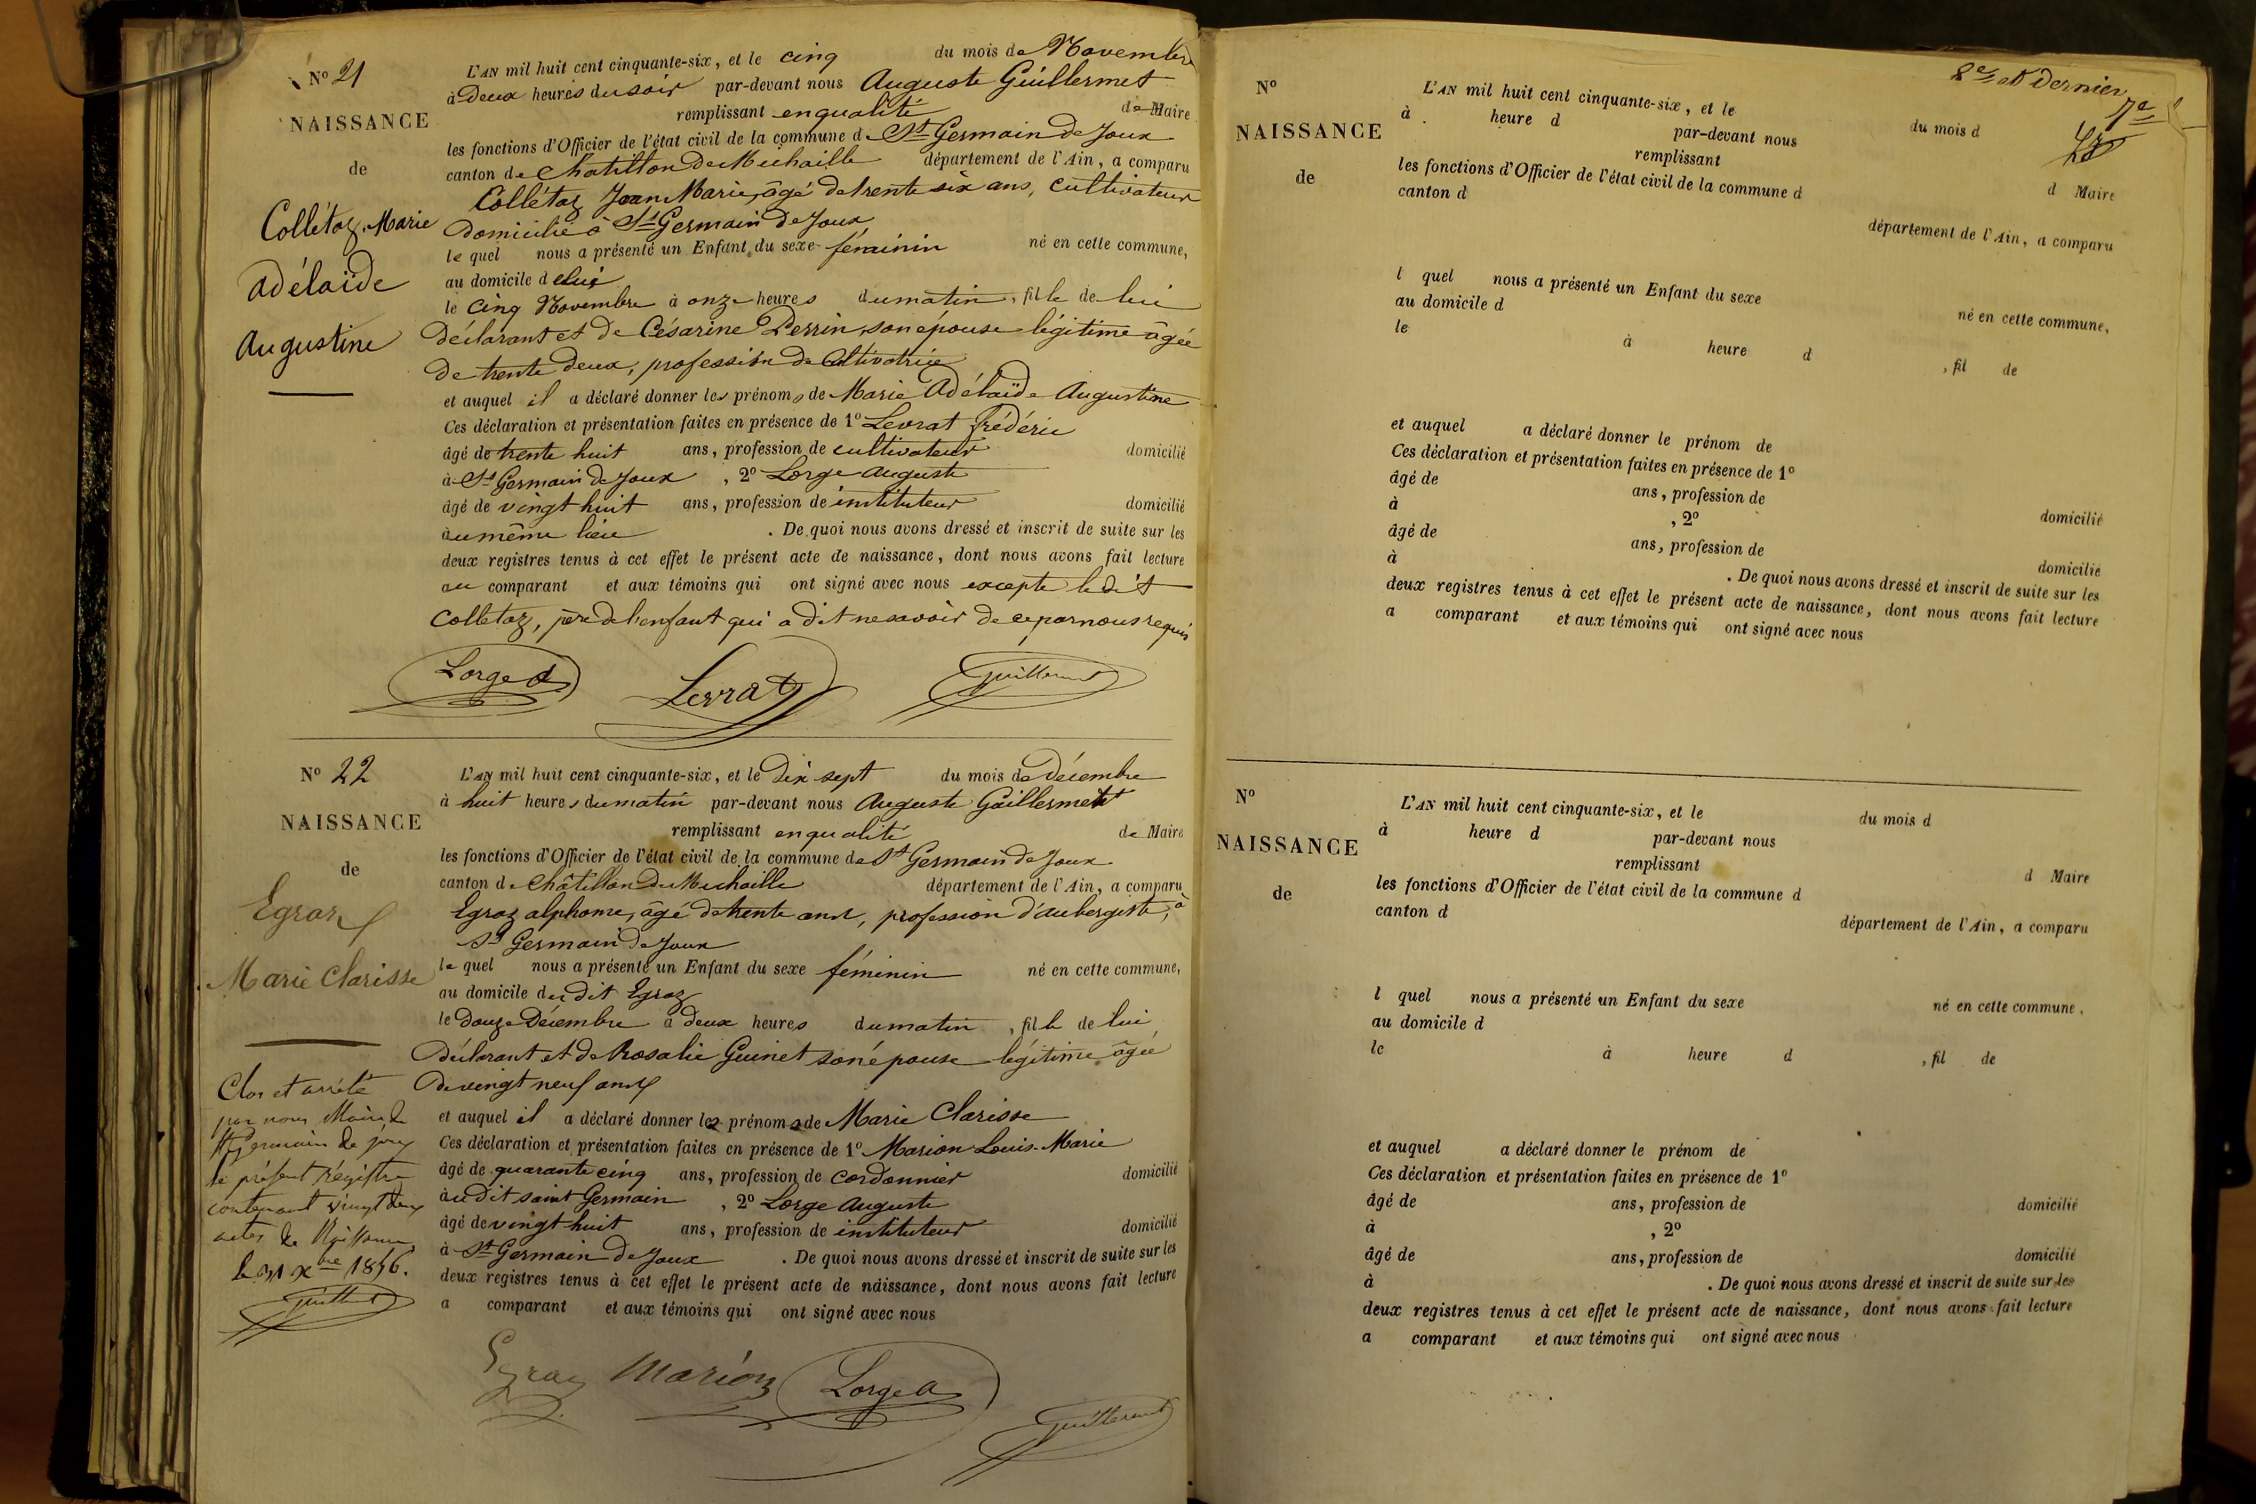 No 21
NAISSANCE
de
Collétaz Marie
Adélaïde
Augustine
L'AN mil huit cent cinquante-six, et le cinq du mois de Novembre
à Deux heures du soir par-devant nous Auguste Guillermet
remplissant en qualité de Maire
les fonctions d'Officier de l'état civil de la commune de St Germain de Joux
canton de Chatillon De Michaille département de l'Ain, a comparu
Collétaz Jean Marie, âgé de trente six ans, cultivateur
Domicilié à St Germain de Joux
le quel nous a présenté un Enfant du sexe féminin né en cette commune,
au domicile de lui
le cinq Novembre à onze heures du matin, fille de lui
déclarant et de Césarine Perrin, son épouse légitime âgée
de trente deux, profession de Cultivatrice
et auquel il a déclaré donner les prénoms de Marie Adélaïde Augustine
Ces déclaration et présentation faites en présence de 1o Levrat Frédéric
âgé de trente huit ans, profession de cultivateur domicilié
à St Germain de Joux, 2o Lorge Auguste
âgé de vingt huit ans, profession de instituteur domicilié
au même lieu. De quoi nous avons dressé et inscrit de suite sur les
deux registres tenus à cet effet le présent acte de naissance, dont nous avons fait lecture
au comparant et aux témoins qui ont signé avec nous excepté le dit
Collétaz, père de l'enfant qui a dit ne savoir de ce par nous requis
Lorge A Levrat Guillermet
No 22
NAISSANCE
de
Egraz
Marie Clarisse
Clos et arrêté
par nous Maire de
St Germain de joux
le présent Régistre
contenant vingt deux
actes de Naissance
le 31 Xbre 1856.
Guillermet
L'AN mil huit cent cinquante-six, et le Dix sept du mois de Décembre
à huit heures du matin par-devant nous Auguste Guillermet
remplissant en qualité de Maire
les fonctions d'Officier de l'état civil de la commune de St Germain de Joux
canton de Châtillon De Michaille département de l'Ain, a comparu
Egraz alphonse, âgé de trente ans, profession d'aubergiste, à
St Germain de Joux
le quel nous a présenté un Enfant du sexe féminin né en cette commune,
au domicile du dit Egraz
le Douze Décembre à deux heures du matin, fille de lui
Déclarant et de Rosalie Guinet son épouse légitime âgée
De vingt neuf ans
et auquel il a déclaré donner les prénoms de Marie Clarisse
Ces déclaration et présentation faites en présence de 1o Marion Louis Marie
âgé de quarante cinq ans, profession de cordonnier domicilié
àu dit saint Germain, 2o Lorge Auguste
âgé de vingt huit ans, profession de instituteur domicilié
à St Germain de Joux. De quoi nous avons dressé et inscrit de suite sur les
deux registres tenus à cet effet le présent acte de naissance, dont nous avons fait lecture
a comparant et aux témoins qui ont signé avec nous
Egraz Marion Lorge A
Guillermet
8e et Dernier
7e
No
NAISSANCE
de
L'AN mil huit cent cinquante-six, et le du mois d
à heure d par-devant nous
remplissant d Maire
les fonctions d'Officier de l'état civil de la commune d
canton d département de l'Ain, a comparu
l quel nous a présenté un Enfant du sexe né en cette commune,
au domicile d
le à heure d , fil de
et auquel a déclaré donner le prénom de
Ces déclaration et présentation faites en présence de 1o
âgé de ans, profession de domicilié
à , 2o
âgé de ans, profession de domicilié
à . De quoi nous avons dressé et inscrit de suite sur les
deux registres tenus à cet effet le présent acte de naissance, dont nous avons fait lecture
a comparant et aux témoins qui ont signé avec nous
No
NAISSANCE
de
L'AN mil huit cent cinquante-six, et le du mois d
à heure d par-devant nous
remplissant d Maire
les fonctions d'Officier de l'état civil de la commune d
canton d département de l'Ain, a comparu
l quel nous a présenté un Enfant du sexe né en cette commune,
au domicile d
le à heure d , fil de
et auquel a déclaré donner le prénom de
Ces déclaration et présentation faites en présence de 1o
âgé de ans, profession de domicilié
à , 2o
âgé de ans, profession de domicilié
à . De quoi nous avons dressé et inscrit de suite sur les
deux registres tenus à cet effet le présent acte de naissance, dont nous avons fait lecture
a comparant et aux témoins qui ont signé avec nous